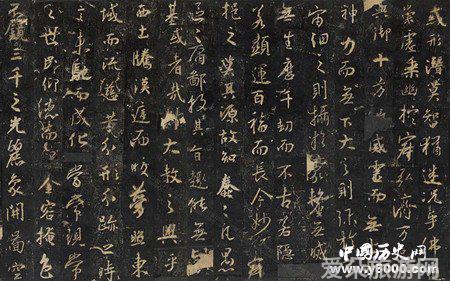 或形潛莫智猶迷況乎佛
崇虛乘幽控寂弘濟万
典御十方威靈而無
神力而無下大之則弥於
宙細之則攝於豪釐無滅
無生歷千劫而不古若隱
若顯運百福而長今妙
挹之莫其源故知蠢蠢凡愚
區區庸鄙投其旨趣能無
惑者哉大教之興乎
西土騰漢庭而皎夢照東
域而流慈昔分形分迹之時
言未馳而成化當常現常
之世民仰德而知金容掩色
不鏡三千之光麗象開圖空
中国历史网
www.y8000.com